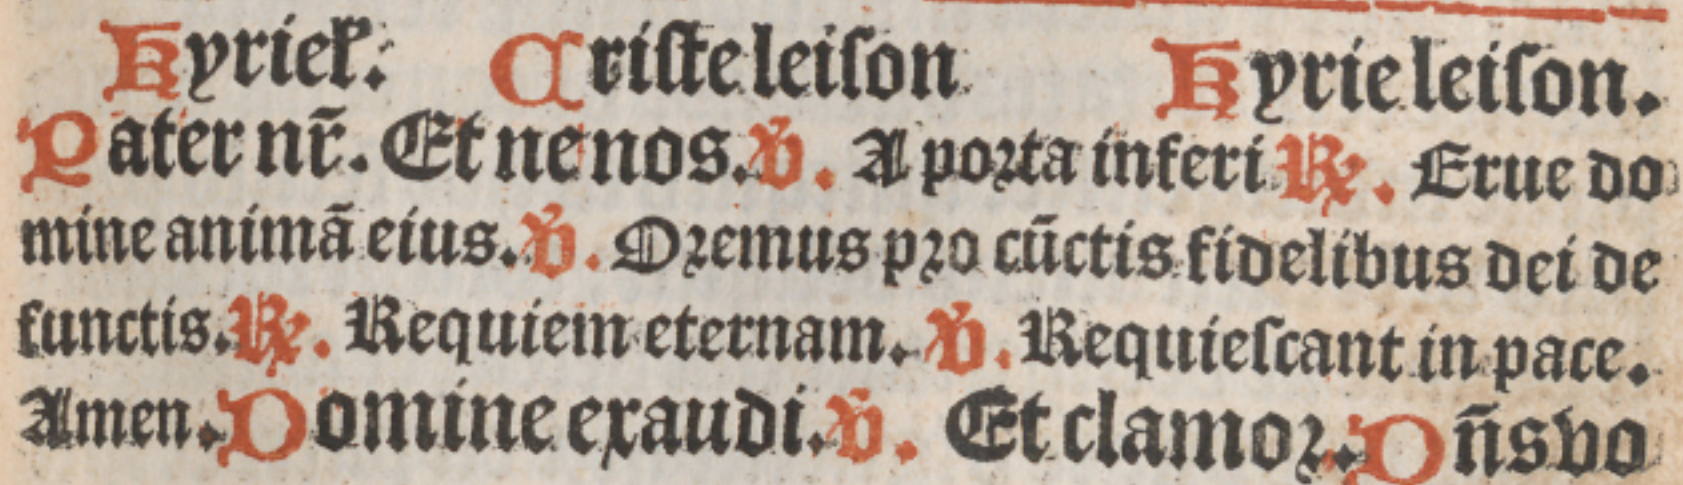 Kyriel̃: Criſteleiſon Kyrieleiſon.
Pater nr̃. Et ne nos. ℣. A poꝛta inferi ℟. Erue do
mine animã eius. ℣. Oꝛemus pꝛo cũctis fidelibus dei de
functis. ℟. Requiem eternam. ℣. Requieſcant in pace.
Amen. Domine exaudi. ℣. Et clamoꝛ. Dñs vo